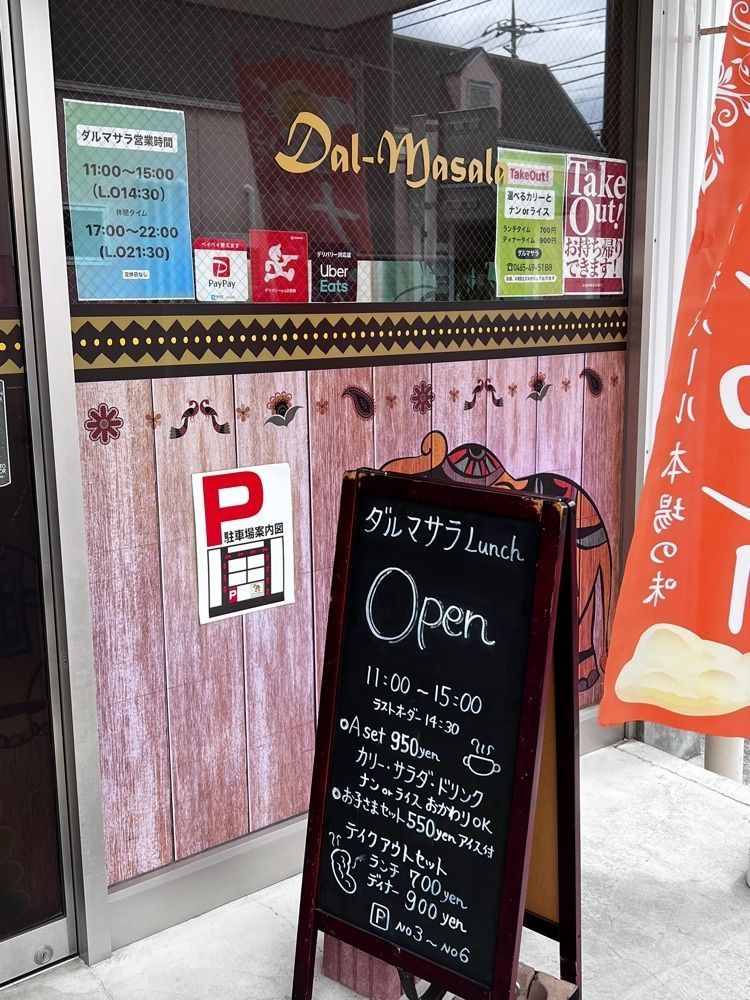 ダルマサラ営業時間
11:00～15:00
(L.O14:30)
休憩タイム
17:00～22:00
(L.O21:30)
定休日なし
Dal-Masala
ペイペイ使えます
PayPay
デリバリー対応店
Uber
Eats
TakeOut!
選べるカリーと
ナンorライス
ランチタイム 700円
ディナータイム 900円
ダルマサラ
☎0465-49-5188
Take
Out!
お持ち帰り
できます!
P
駐車場案内図
P
ダルマサラLunch
Open
11:00～15:00
ラストオーダー14:30
A set 950yen
カリー・サラダ・ドリンク
ナンorライスおかわりOK
お子さまセット550yenアイス付
テイクアウトセット
ランチ 700yen
ディナー 900yen
P No3～No6
パール本場の味